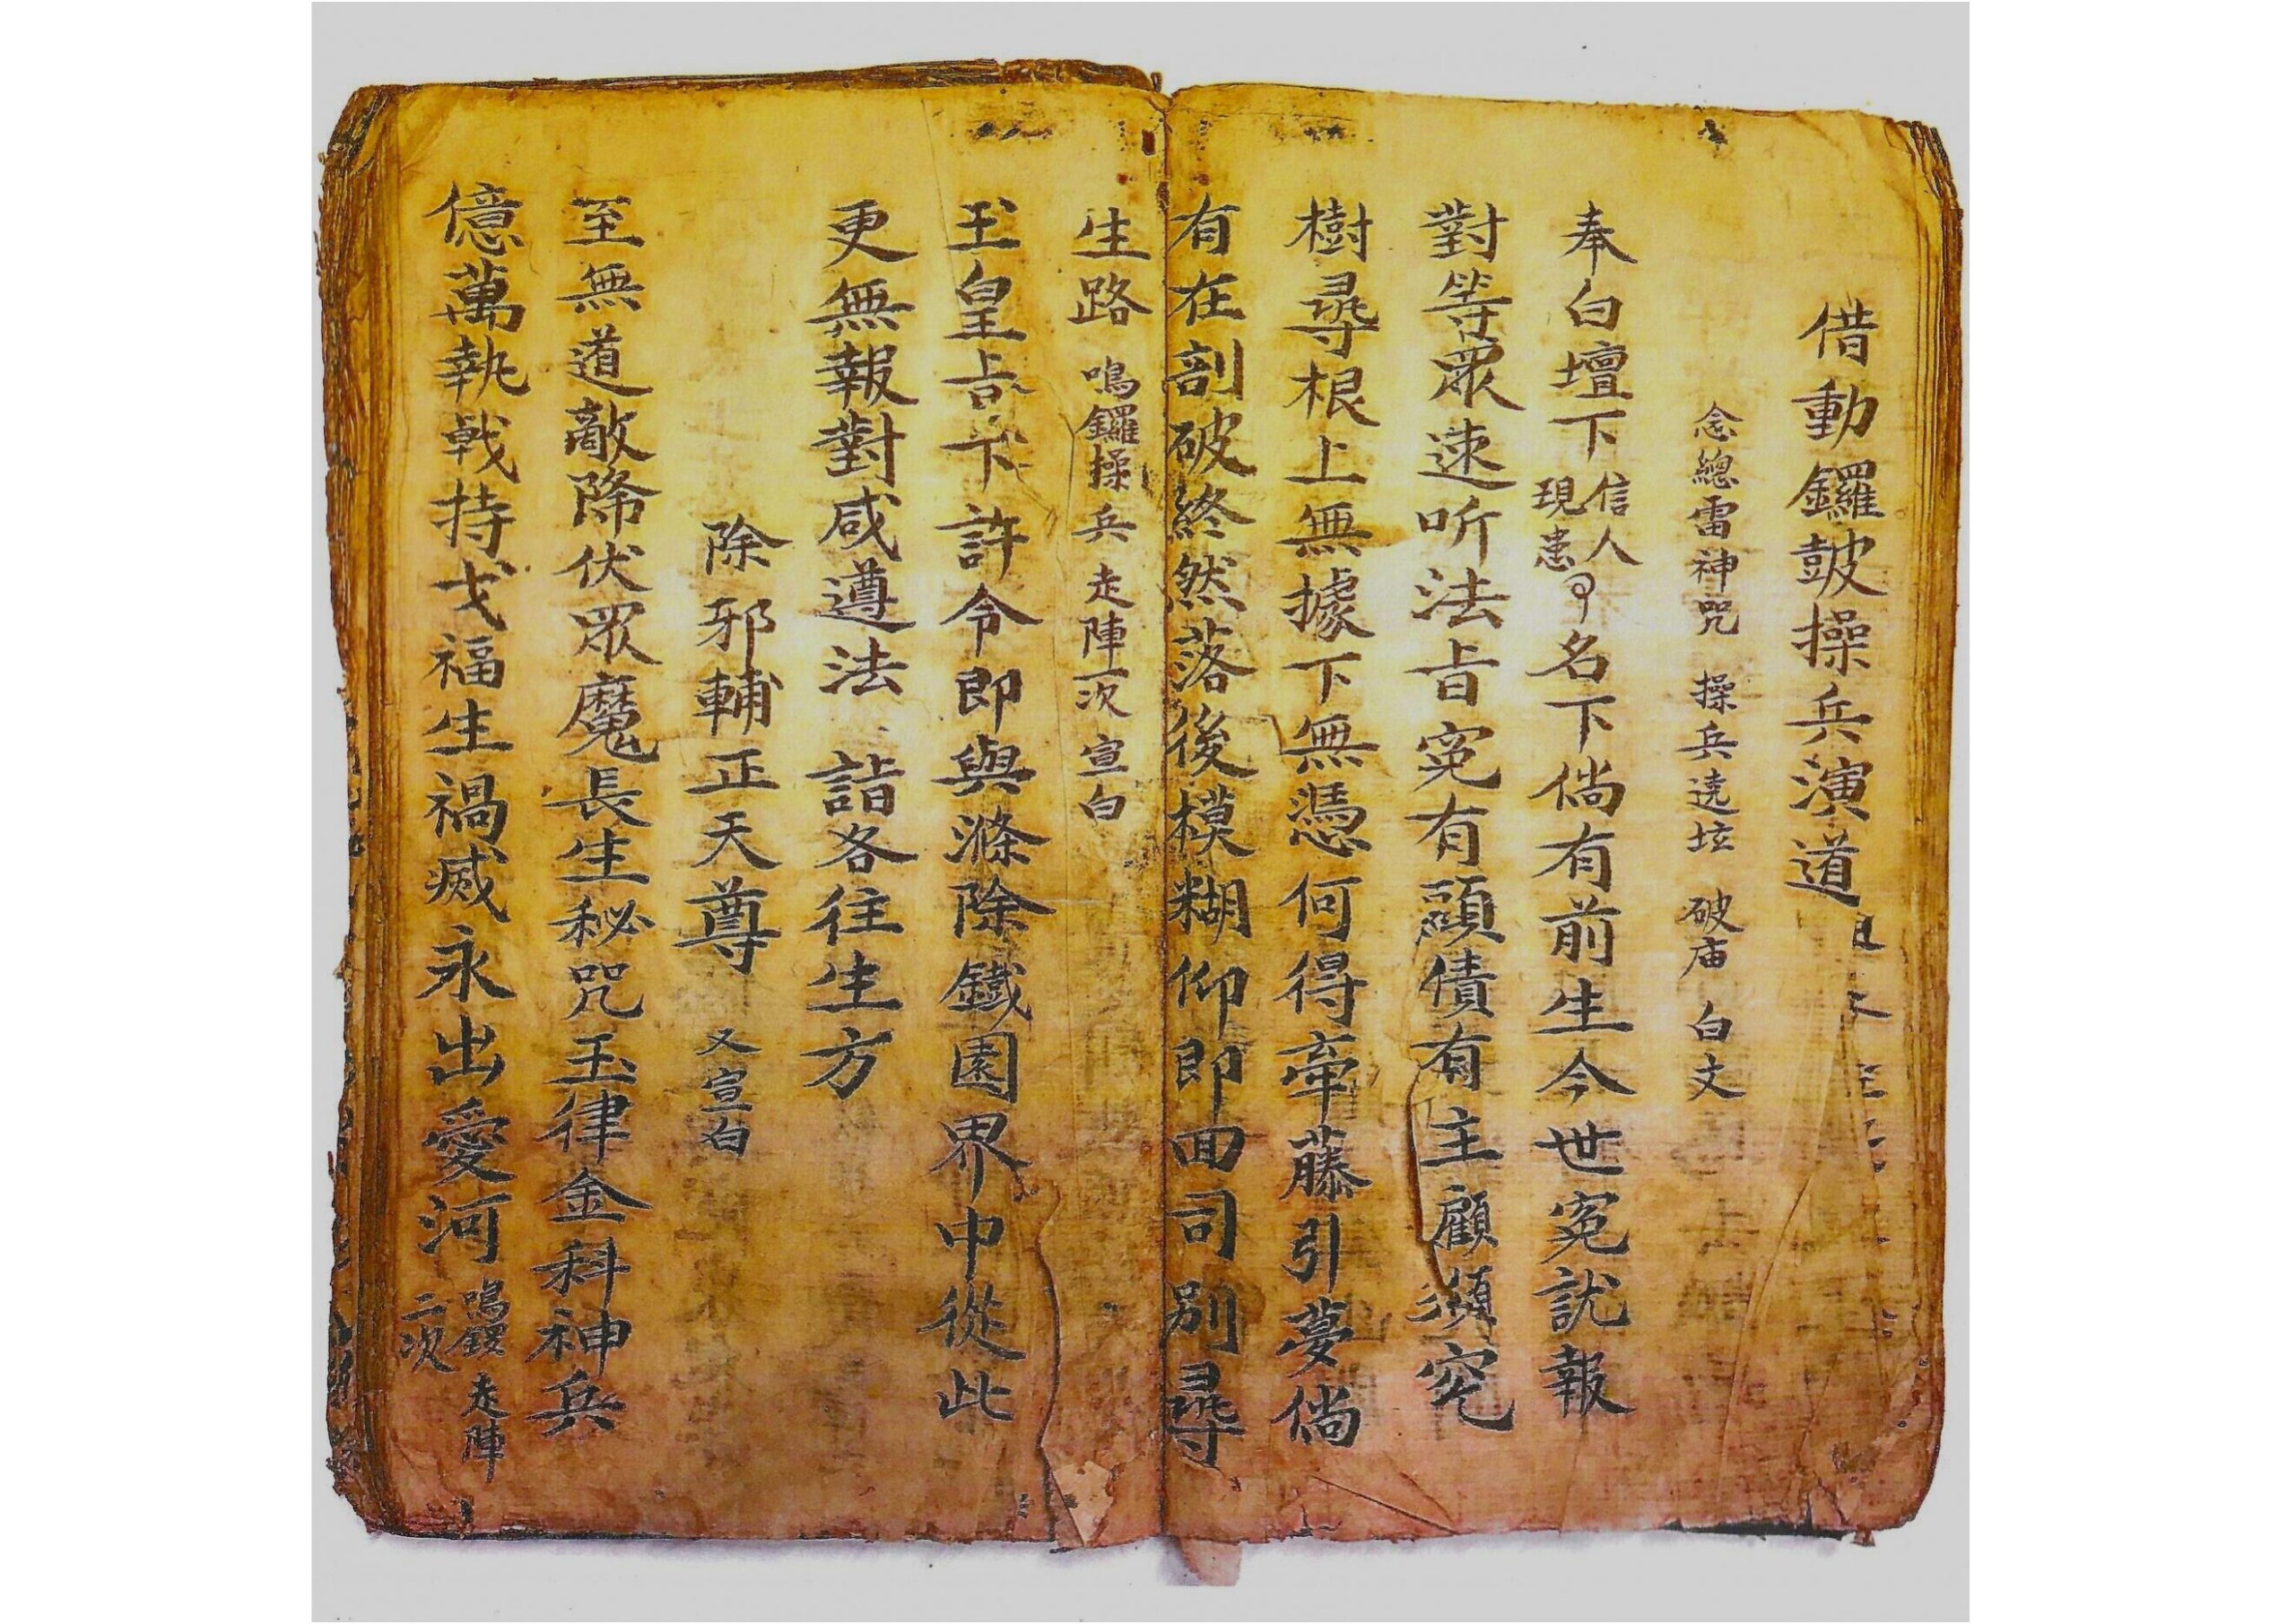 借動鑼鼓操兵演道
念總雷神咒 操兵遶坛 破庙 白文
奉白壇下信人現患名下倘有前生今世冤訧報
對等眾速听法旨冤有頭債有主顧須究
樹尋根上無據下無憑何得牽藤引夢倘
有在剖破終然落後模糊仰即回司別尋
生路 鳴鑼操兵 走陣一次 宣白
玉皇旨下許令即與滌除鐵圍界中從此
更無報對咸遵法 詣各往生方
除邪輔正天尊 又宣白
至無道敵降伏眾魔長生秘咒玉律金科神兵
億萬執戟持戈福生禍滅永出愛河 鳴鑼二次 走陣